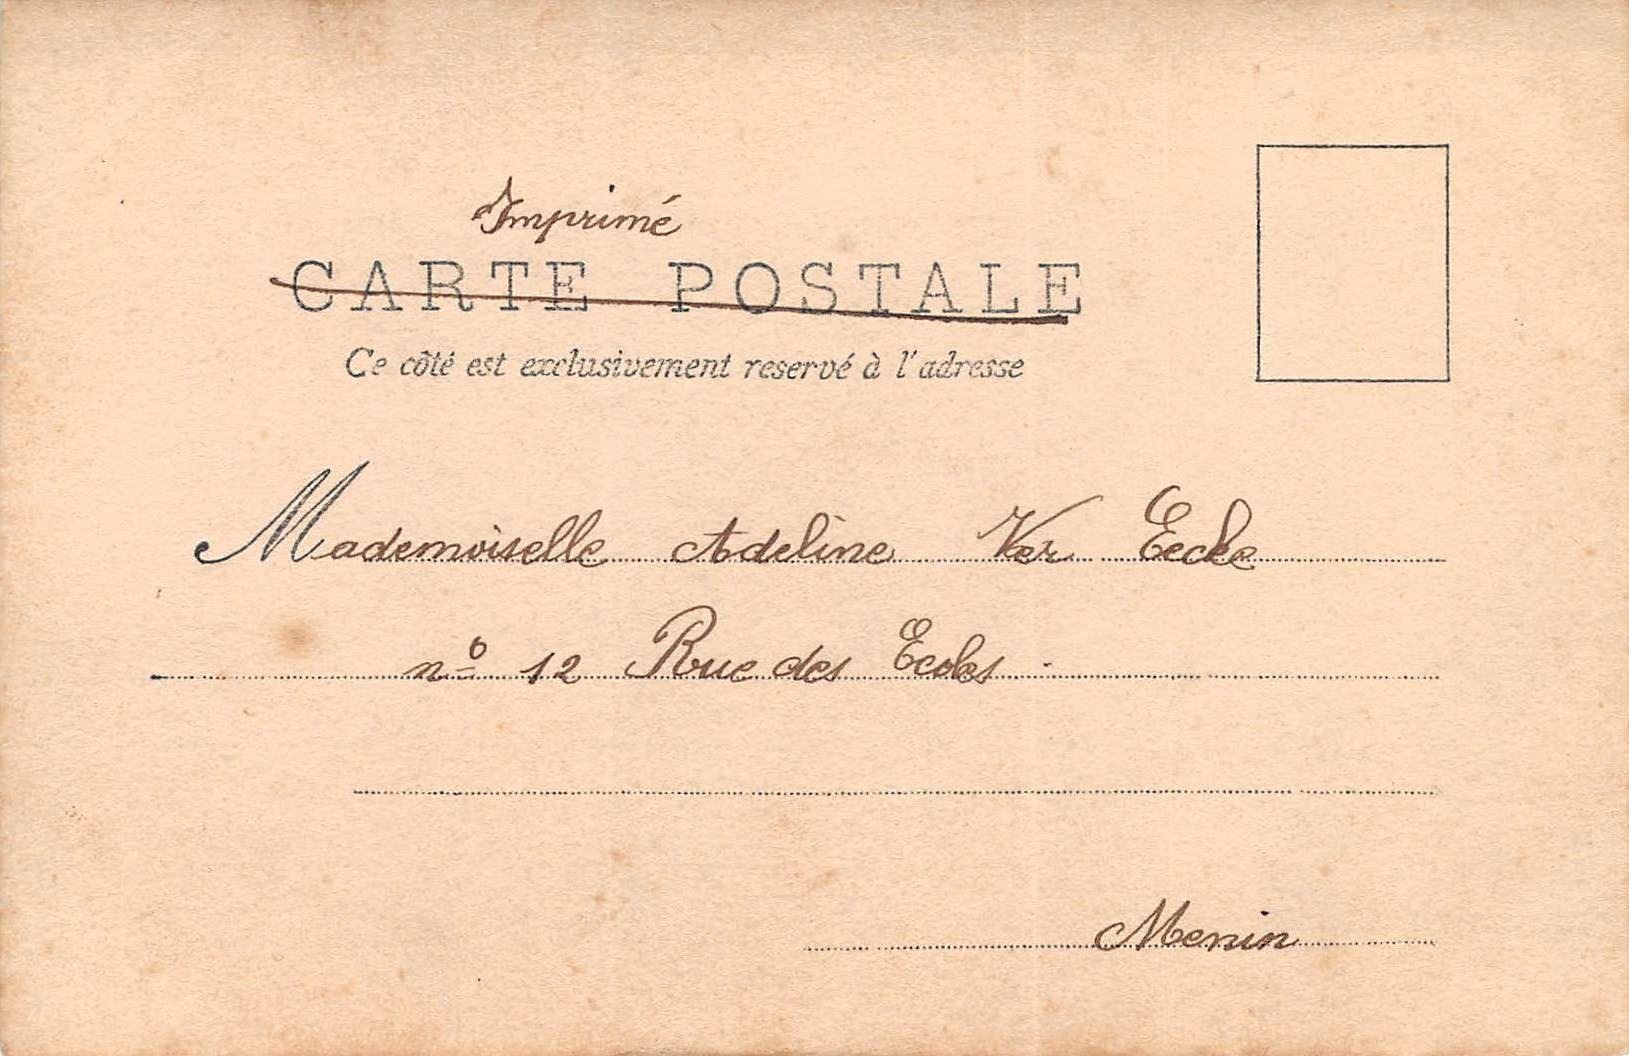 Imprimé
CARTE POSTALE
Ce côté est exclusivement reservé à l'adresse
Mademoiselle Adeline Ver Eecke
nº 12 Rue des Ecoles.
Menin